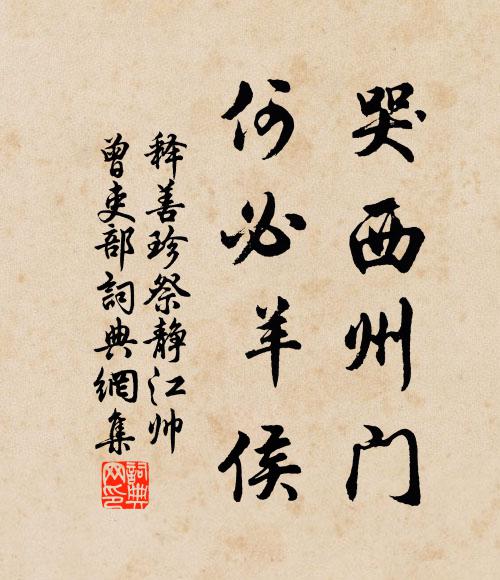 哭西州门
何必羊侯
释善珍祭静江帅
曾吏部詞典網集
詞典網印